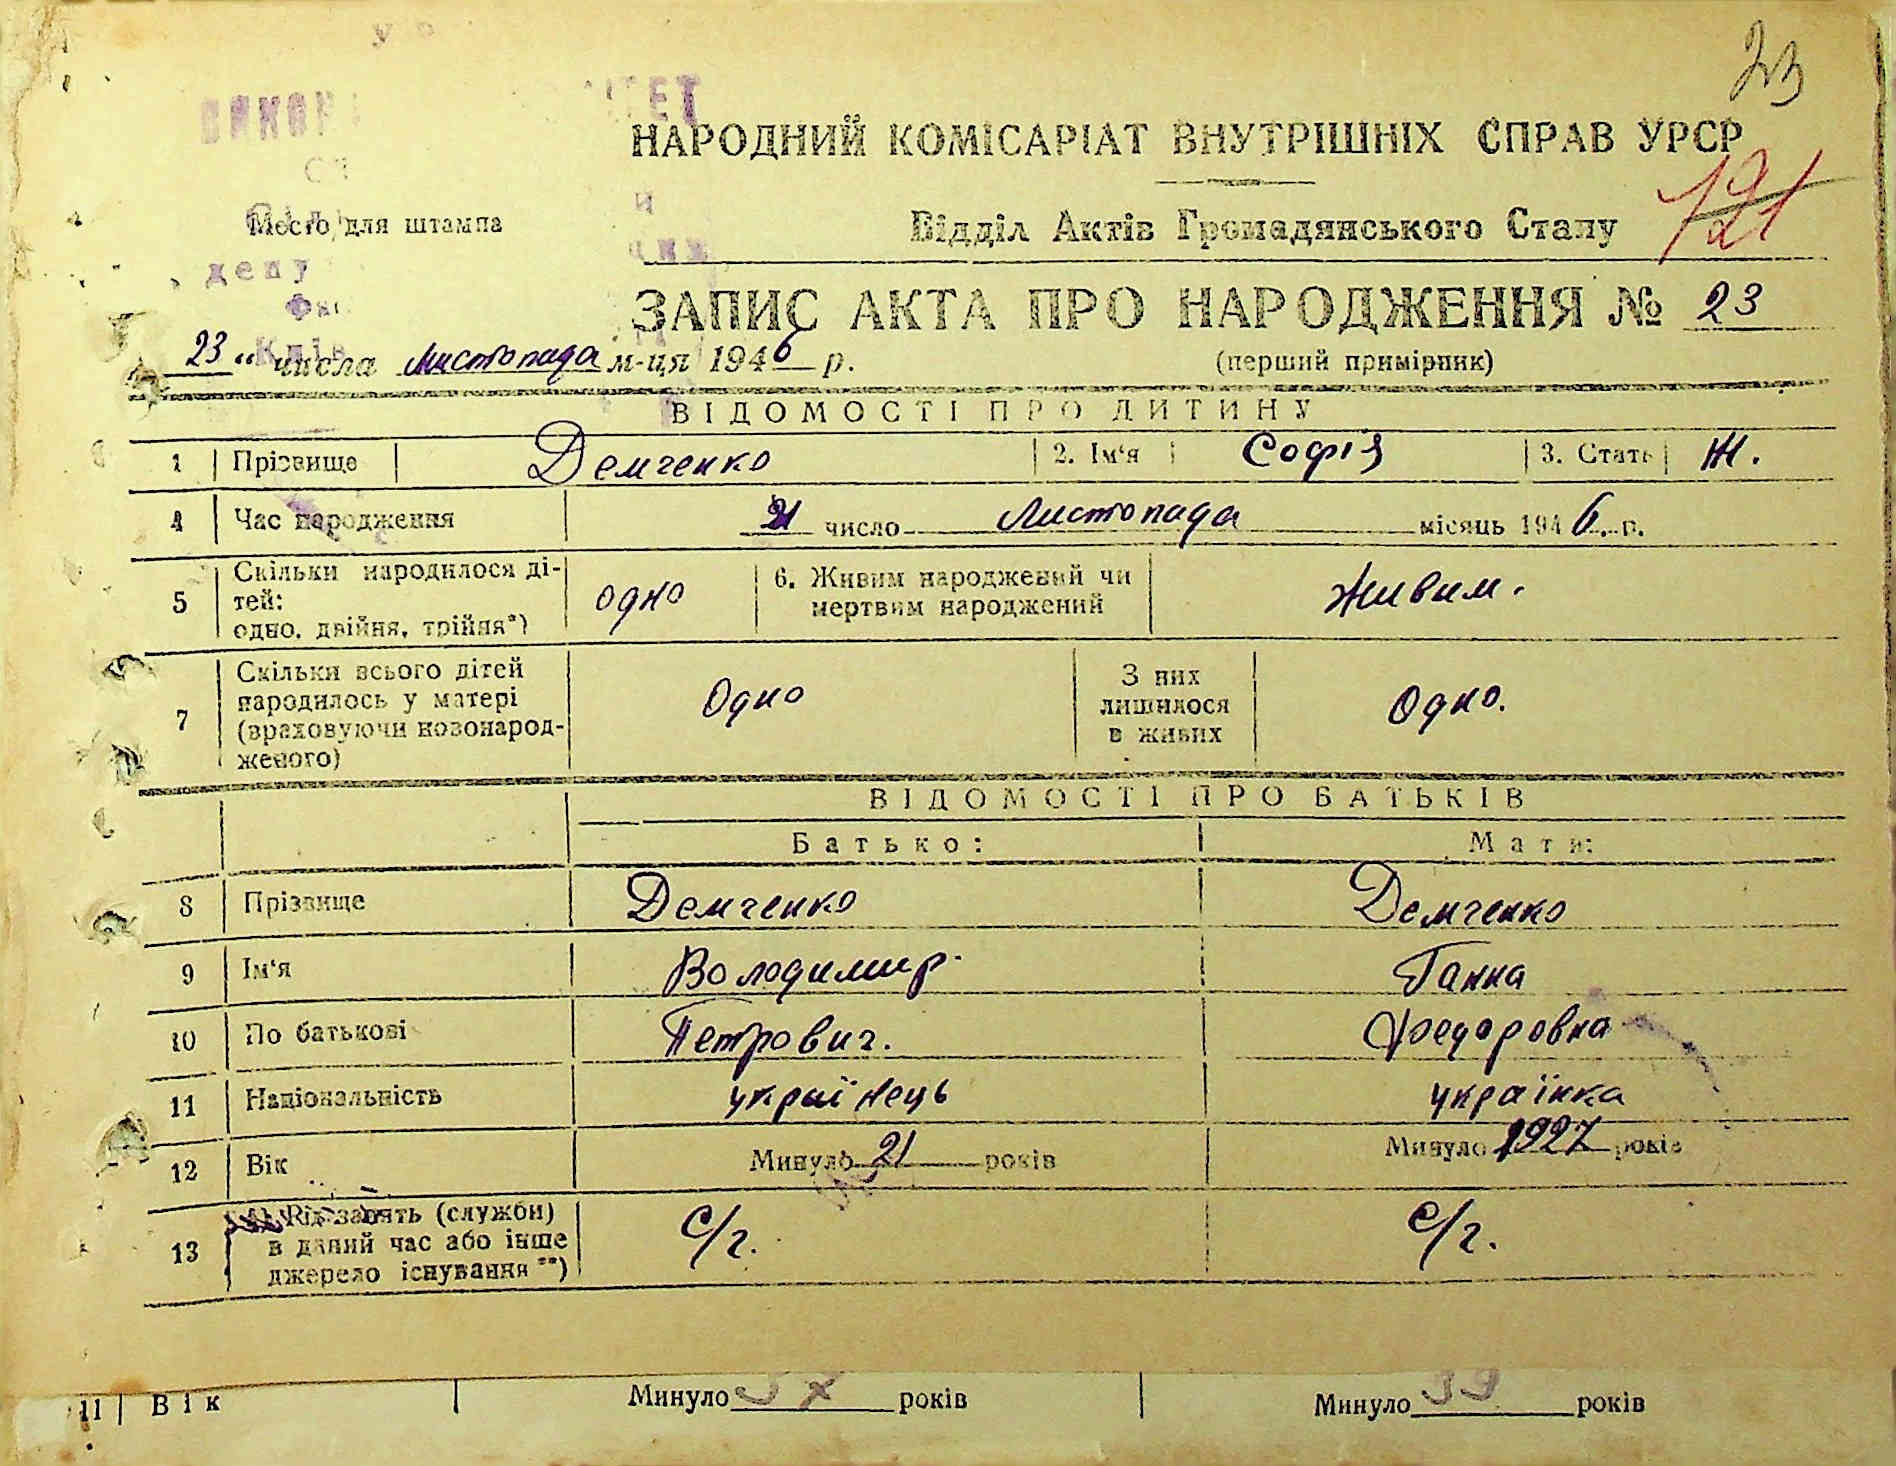 23
НАРОДНИЙ КОМІСАРІАТ ВНУТРІШНІХ СПРАВ УРСР
Место для штампа
Відділ Актів Громадянського Стану
121
ЗАПИС АКТА ПРО НАРОДЖЕННЯ № 23
(перший примірник)
23 “ числа Листопада м-ця 1946 р.
ВІДОМОСТІ ПРО ДИТИНУ
1 Прізвище Демченко 2. Ім‘я Софія 3. Стать Ж.
4 Час народження 21 число Листопада місяць 1946. р.
5 Скільки народилося ді-
тей:
одно, двійня, трійня*) одно 6. Живим народжений чи
мертвим народжений Живим.
7 Скільки всього дітей
народилось у матері
(враховуючи новонарод-
женого) Одно З них
лишилося
в живих Одно.
ВІДОМОСТІ ПРО БАТЬКІВ
Батько: Мати:
8 Прізвище Демченко Демченко
9 Ім‘я Володимир. Ганна
10 По батькові Петрович. Федоровна
11 Національність українець українка
12 Вік Минуло 21 років Минуло 1927 років
13 Рід занять (служби)
в даний час або інше
джерело існування **) С/г. С/г.
11 Вік Минуло років Минуло 39 років